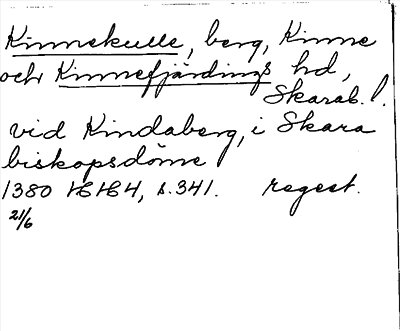 Kinnekulle, berg, Kinne
och Kinnefjärdings hd,
Skarab. l.
vid Kindaberg, i Skara
biskopsdöme
1380 HH4, s. 341. regest.
21/6